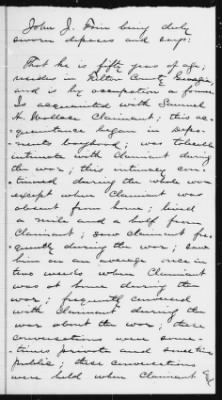 John J. Fain being duly
sworn deposes and says:
That he is fifty years of age;
resides in Fulton County Georgia
and is by occupation a farmer
Is acquainted with Samuel
H. Wallace Claimant; this ac-
quaintance began in depo-
nents boyhood; was tolerably
intimate with Claimant during
the war; this intimacy con-
tinued during the whole war
except when Claimant was
absent from home; lived
a mile and a half from
Claimant; saw Claimant fre-
quently during the war; saw
him on an average once in
two weeks when Claimant
was at home during the
war; frequently conversed
with Claimant during the
war about the war; these
conversations were some-
times private and sometimes
public; these conversations
were held when Claimant